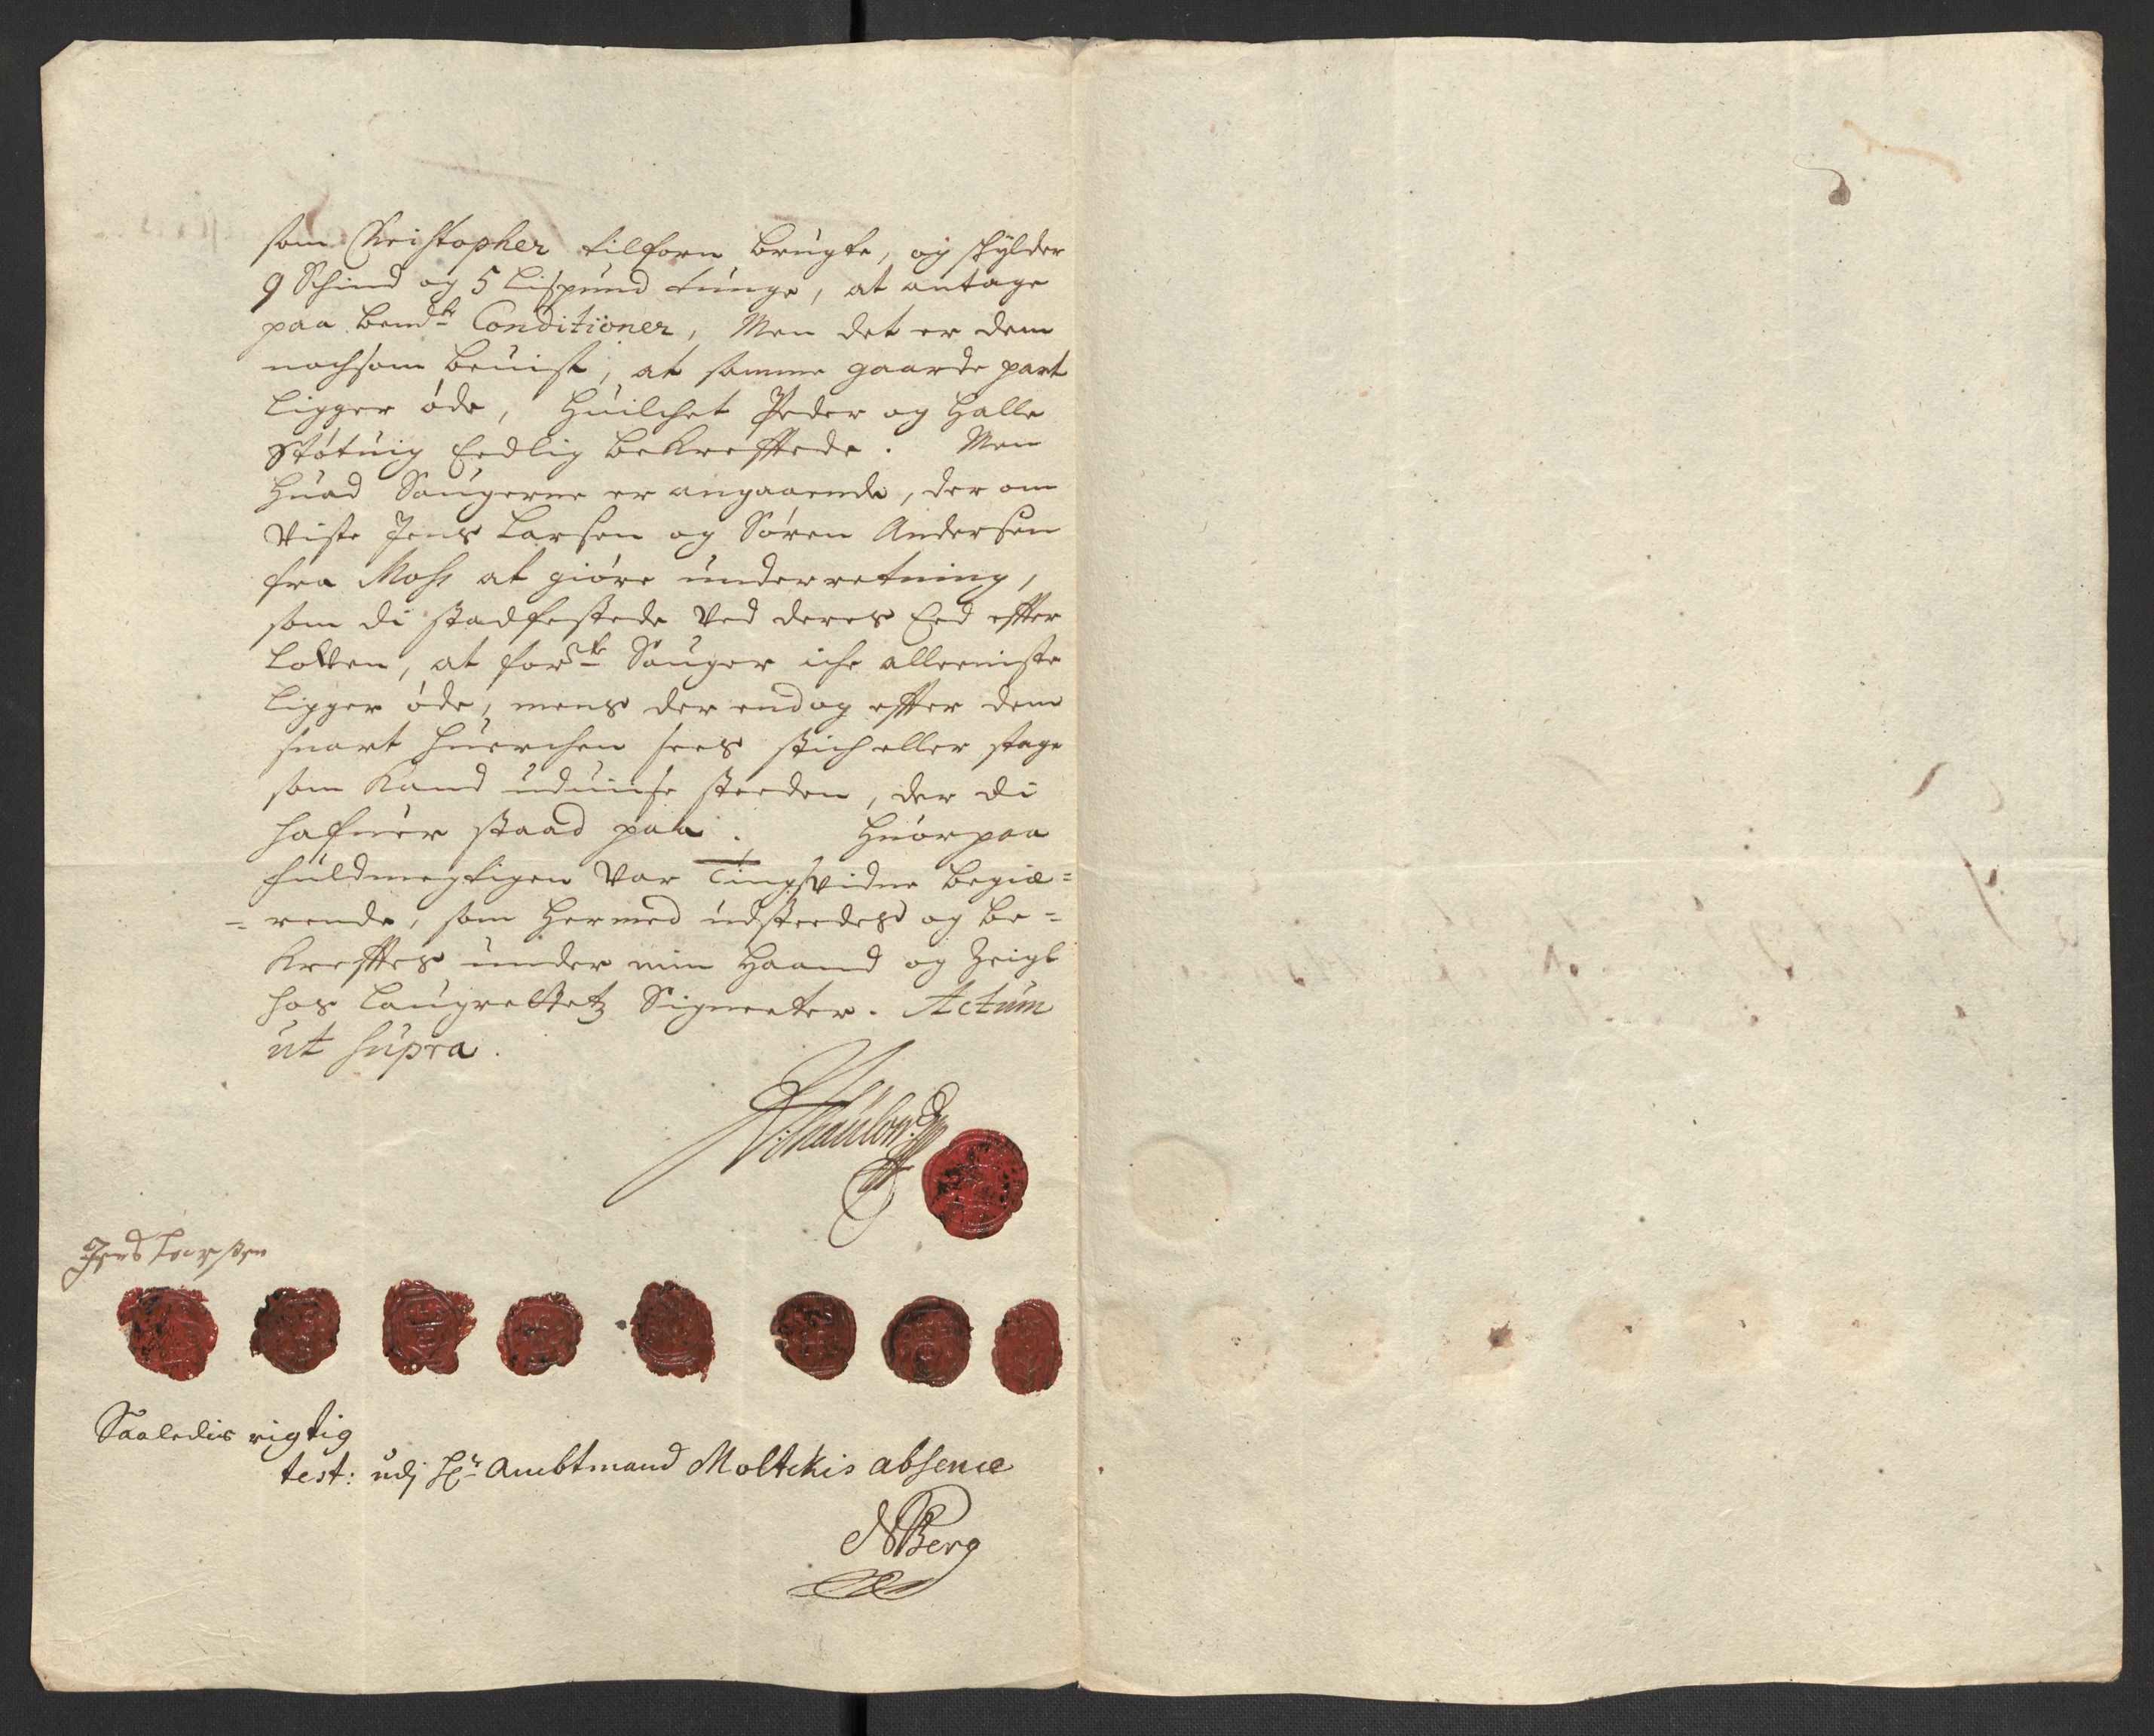 som Christopher tilforn brugte, og skylder
9 Schind og 5 Lispund tunge, at antage
paa bemdte Conditioner, Men det er dem
nochsom beuist, at samme gaarde part
ligger øde, Huilchet Peder og Halle
Støtuig Eedlig bekreffede. Men
Huad Saugerne er angaaende, der om
viste Jens Larsen og Søren Andersen
fra Moss at giøre underretning,
som di stadfestede ved deres Eed effter
Lowen, at forbte Sauger iche alleeniste
ligger øde, mens der endog effter dem
snart huerchen sees stich eller stage
som kand uduise steeden, der di
hafuer staad paa. Huorpaa
fuldmegtigen var Tingsvidne begiæ=
=rende, som hermed udsteedes og be=
krefftes under min Haand og Zeigl
hos Laugrettetz Signeter. Actum
ut supra.
Jens Larsen
Saaledis rigtig
test: udj Hr Ambtmand Moltekis absence
NBerg